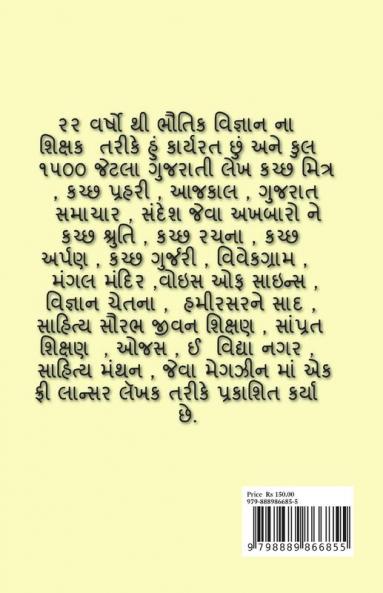 ૨૨ વર્ષો થી ભૌતિક વિજ્ઞાન ના
શિક્ષક તરીકે હું કાર્યરત છું અને કુલ
૧૫૦૦ જેટલા ગુજરાતી લેખ કચ્છ મિત્ર
, કચ્છ પ્રહરી , આજકાલ , ગુજરાત
સમાચાર , સંદેશ જેવા અખબારો ને
કચ્છ શ્રુતિ , કચ્છ રચના , કચ્છ
અર્પણ , કચ્છ ગુર્જરી , વિવેકગ્રામ ,
મંગલ મંદિર ,વોઇસ ઓફ સાઇન્સ ,
વિજ્ઞાન ચેતના , હમીરસરને સાદ ,
સાહિત્ય સૌરભ જીવન શિક્ષણ , સાંપ્રત
શિક્ષણ , ઓજસ , ઈ વિદ્યા નગર ,
સાહિત્ય મંથન , જેવા મેગઝીન માં એક
ફ્રી લાન્સર લૅખક તરીકે પ્રકાશિત કર્યા
છે.
Price Rs 150.00
979-888986685-5
9 798889 866855